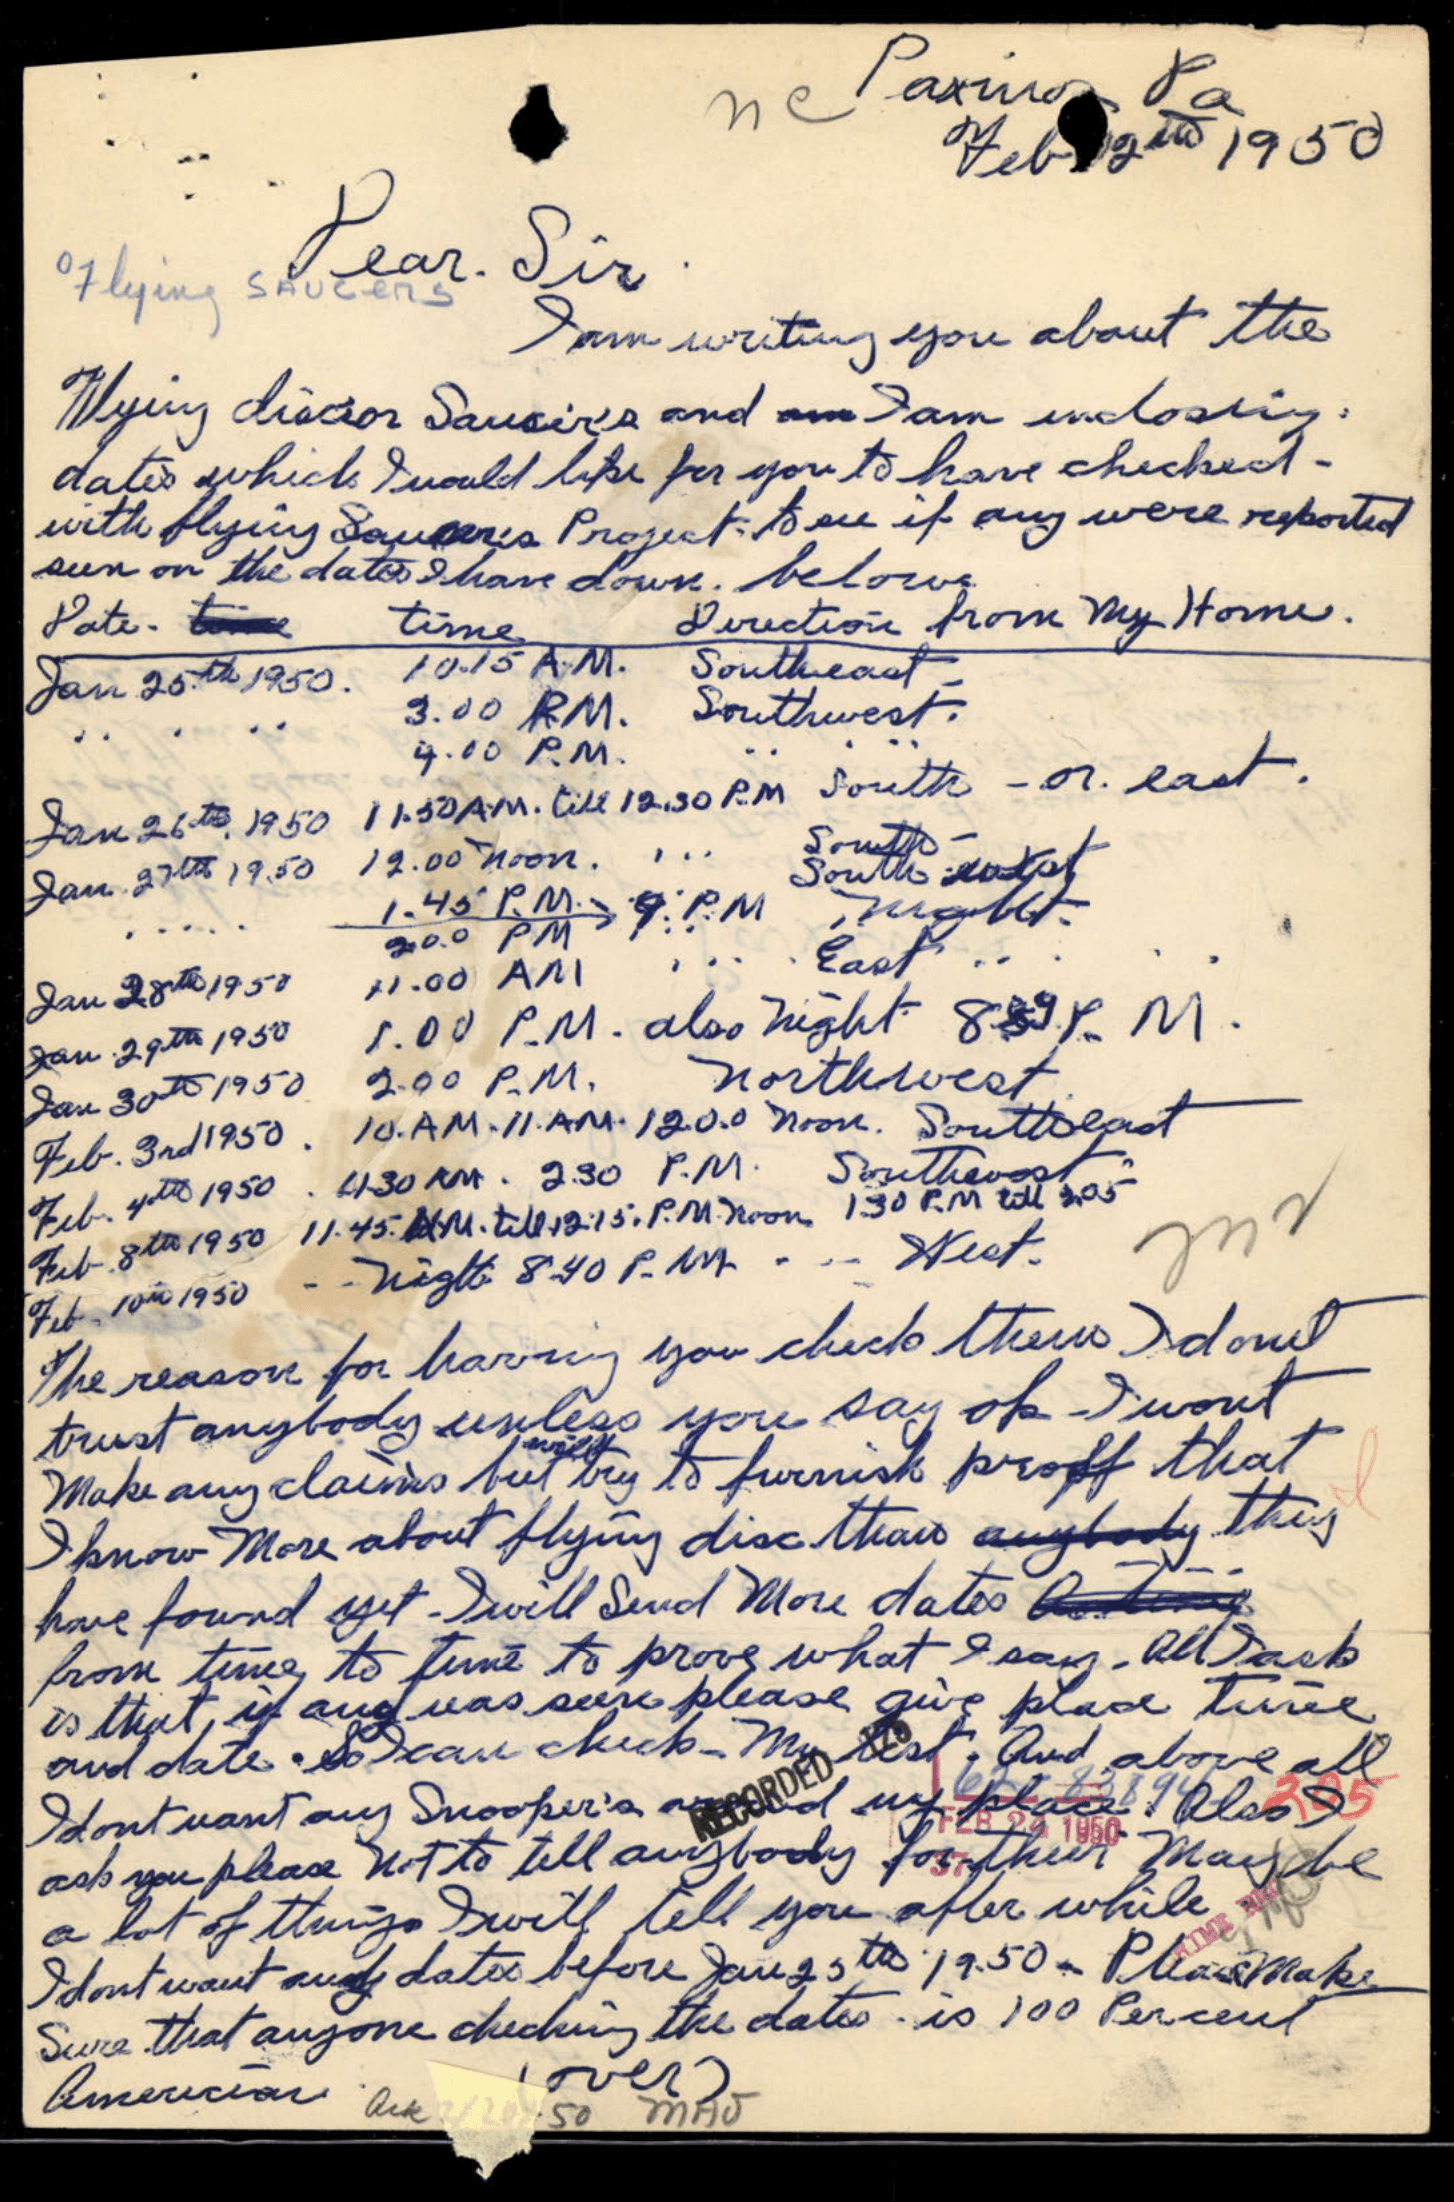 Paxinos Pa
nc
Feb 12th 1950
Dear. Sir.
Flying SAUCERS
I am writing you about the
Flying disc or Saucir's and am I am inclosing:
dates which I would like for you to have checked -
with flying Saucers Project: to see if any were reported
seen on the dates I have down. below
Date - time time Direction from My Home.
Jan 25th 1950. 10.15 A.M. Southeast -
" " " 3.00 P.M. Southwest.
4.00 P.M. " " "
Jan 26th. 1950 11.50 A.M. till 12.30 P.M South - or. east.
Jan. 27th 1950 12.00 noon. South -
1.45 P.M. → 9. P.M South Night.
2.00 PM
Jan 28th 1950 11.00 AM East
Jan. 29th 1950 1.00 P.M. also Night 8 P. M.
Jan 30th 1950 2.00 P.M. Northwest
Feb. 3rd 1950. 10. AM. 11. AM. 12.0.0 Noon. Southeast
Feb. 4th 1950. 2.30 P.M.
Feb. 8th 1950 11.45. A.M. till 12.15. P.M. Noon 1.30 P.M till 2.05
Feb. 10th 1950 -- Night 8.40 P.M. - -- West.
The reason for having you check them I dont
trust anybody unless you say ok - I wont
Make any claims but will try to furnish proff that
I know More about flying disc than anybody they
have found yet - I will Send More dates
from time to time to prove what I say. All I ask
is that, if any was seen please give place time
and date. So I can check - My test. And above all
RECORDED 126
I dont want any Snooper's around my place. Also I
FEB 24 1950
205
37
ask you please Not to tell anybody for their May be
a lot of things I will tell you after while
I dont want any dates before Jan 25th 1950 - Please Make
Sure that anyone checking the dates - is 100 Percent
American
(over)
Ack 50 MAJ